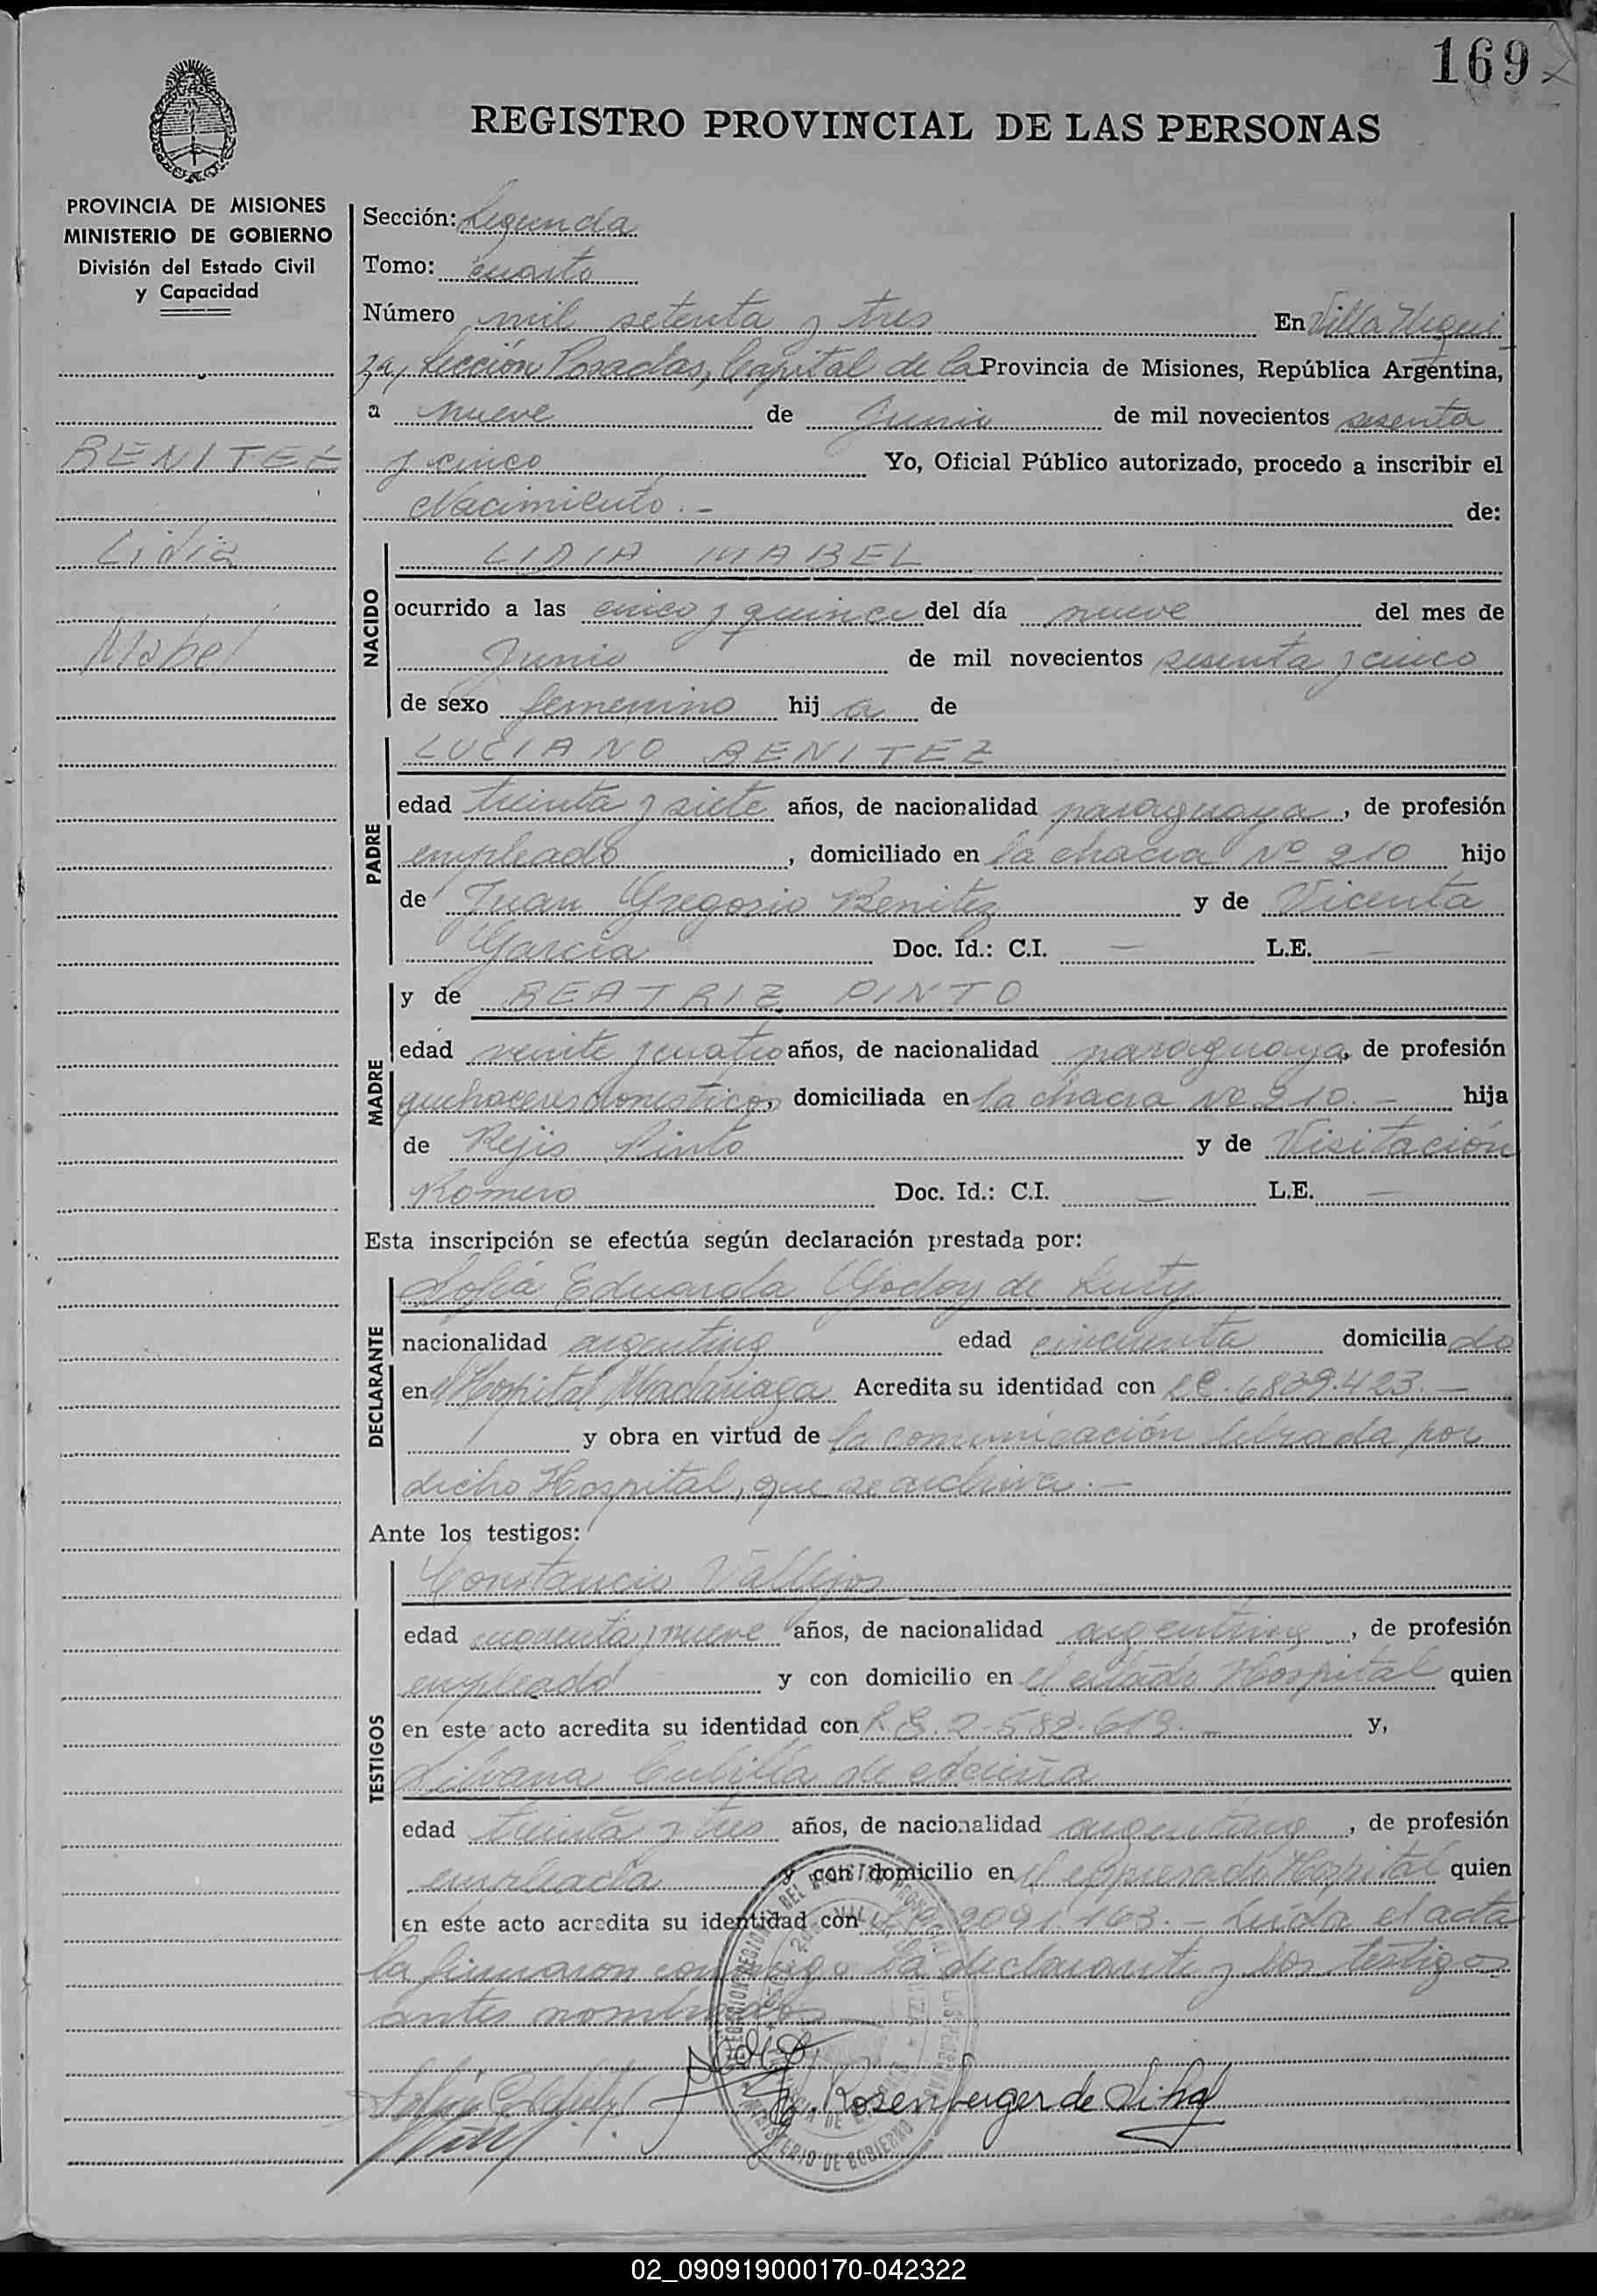 169
REGISTRO PROVINCIAL DE LAS PERSONAS
PROVINCIA DE MISIONES
MINISTERIO DE GOBIERNO
División del Estado Civil
y Capacidad
BENITEZ
Lidia
Mabel
Sección: Segunda
Tomo: cuarto
Número mil setenta y tres En Villa Urqui
za, Sección Posadas, Capital de la Provincia de Misiones, República Argentina,
a nueve de Junio de mil novecientos sesenta
y cinco Yo, Oficial Público autorizado, procedo a inscribir el
Nacimiento.- de:
NACIDO
LIDIA MABEL
ocurrido a las cinco y quince del día nueve del mes de
Junio de mil novecientos sesenta y cinco
de sexo femenino hij a de
PADRE
LUCIANO BENITEZ
edad treinta y siete años, de nacionalidad paraguaya, de profesión
empleado, domiciliado en la chacra Nº 210 hijo
de Juan Gregorio Benitez y de Vicenta
García Doc. Id.: C.I. — L.E. —
MADRE
y de BEATRIZ PINTO
edad veinte y cuatro años, de nacionalidad paraguaya, de profesión
quehaceres domesticos, domiciliada en la chacra Nº 210.- hija
de Rejis Pinto y de Visitación
Romero Doc. Id.: C.I. — L.E. —
Esta inscripción se efectúa según declaración prestada por:
DECLARANTE
Sofia Eduarda Godoy de Luty
nacionalidad argentina edad cincuenta domicilia do
en el Hospital Madariaga Acredita su identidad con L C. 6839.423.-
y obra en virtud de la comunicación librada por
dicho Hospital, que se archiva.-
Ante los testigos:
TESTIGOS
Constancio Vallejos
edad cuarenta y nueve años, de nacionalidad argentina, de profesión
empleado y con domicilio en el citado Hospital quien
en este acto acredita su identidad con L.E. 2.582.619.- y,
Silvana Cubilla de
edad treinta y tres años, de nacionalidad argentina, de profesión
empleada y con domicilio en el expresado Hospital quien
en este acto acredita su identidad con 2091163.- Leída el acta
la firmaron conmigo la declarante y los testigos
antes nombrados
Rosenberger de Silva
MINISTERIO DE GOBIERNO
02_090919000170-042322